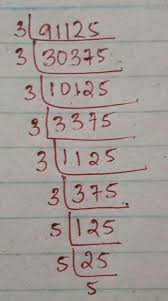 3 91125
3 30375
3 10125
3 3375
3 1125
3 375
5 125
5 25
5